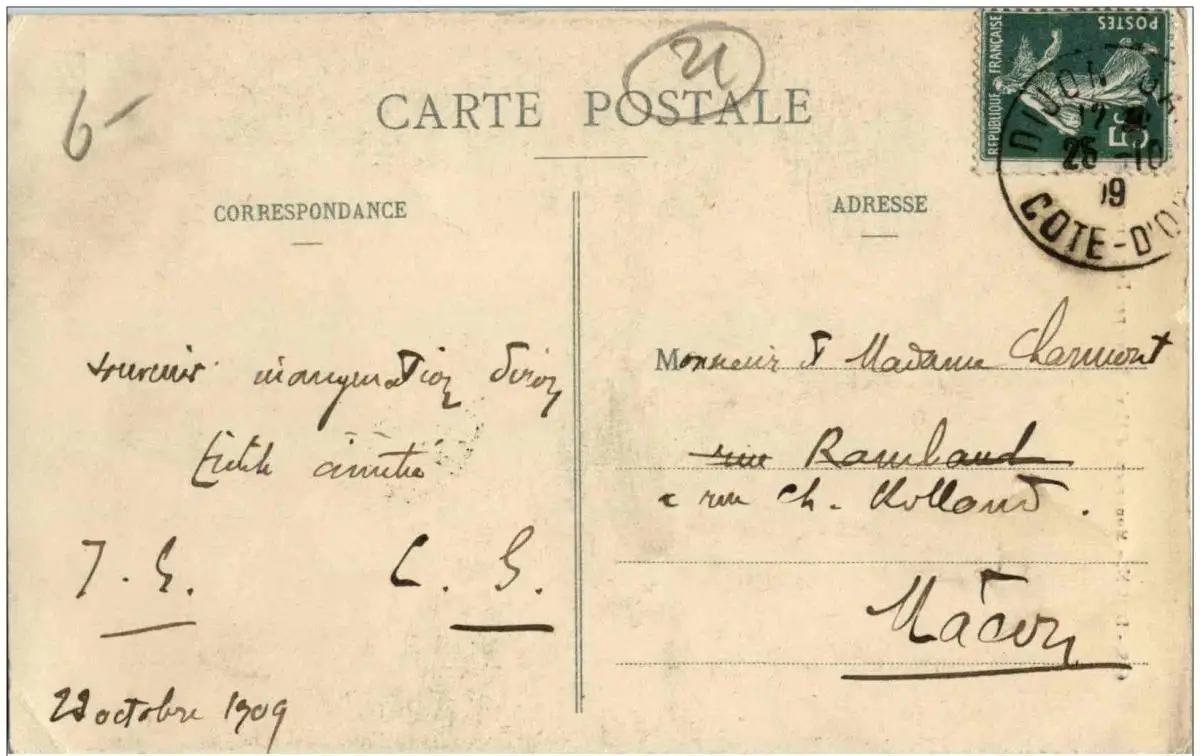 21
6-
CARTE POSTALE
POSTES
REPUBLIQUE FRANÇAISE
5c
DIJON
25 -10
09
COTE-D'O
CORRESPONDANCE
ADRESSE
souvenir inauguration Dijon
amitié
J. G. C. G.
22 octobre 1909
Monsieur & Madame Charmont
rue Rambaud
rue Ch. Rolland.
Mâcon